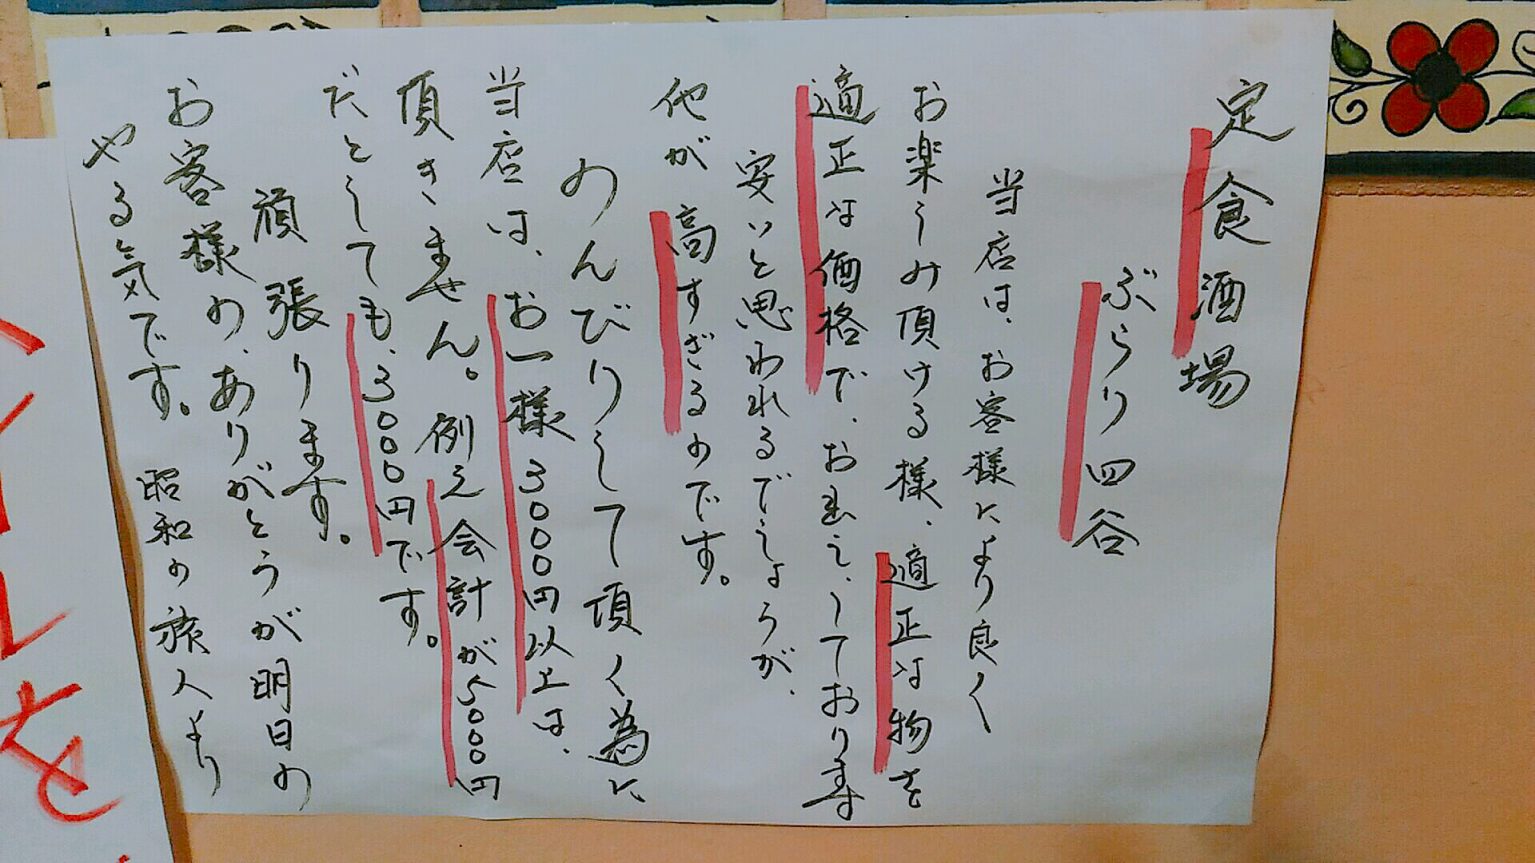 定食酒場
ぶらり四谷
当店は、お客様により良く
お楽しみ頂ける様、適正な物を
適正な価格で、お出し、しております
安いと思われるでしょうが、
他が高すぎるのです。
のんびりして頂く為に
当店は、お一様3000円以上は、
頂きません。例え会計が5000円
だとしても、3000円です。
頑張ります。
お客様の、ありがとうが明日の
やる気です。 昭和の旅人より